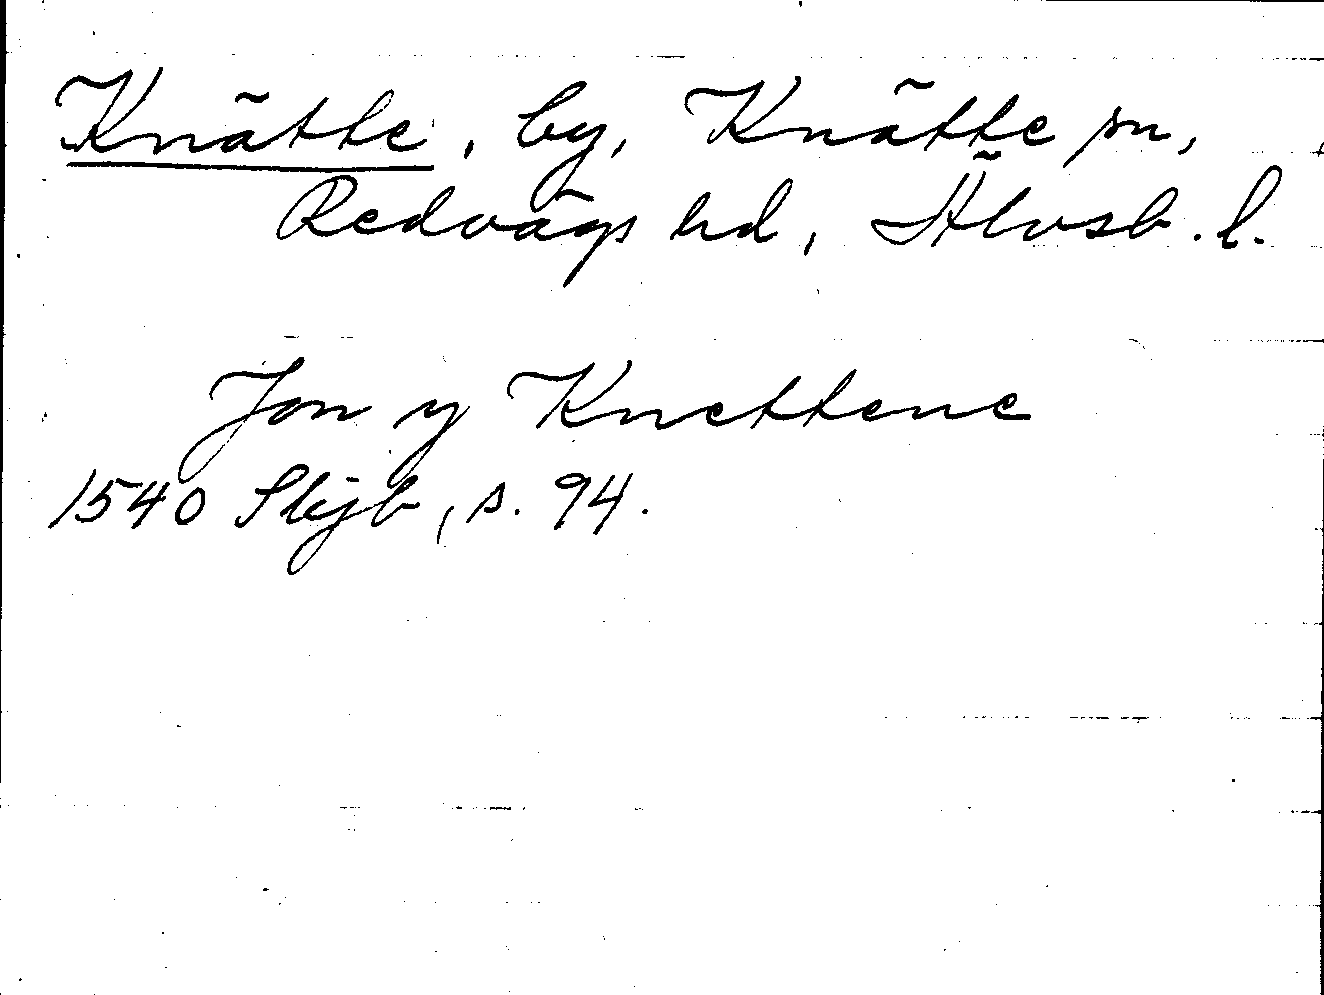 Knätte, by, Knätte sn,
Redvägs hd, Älvsb. l.
Jon y Knettene
1540 Skjb, s. 94.